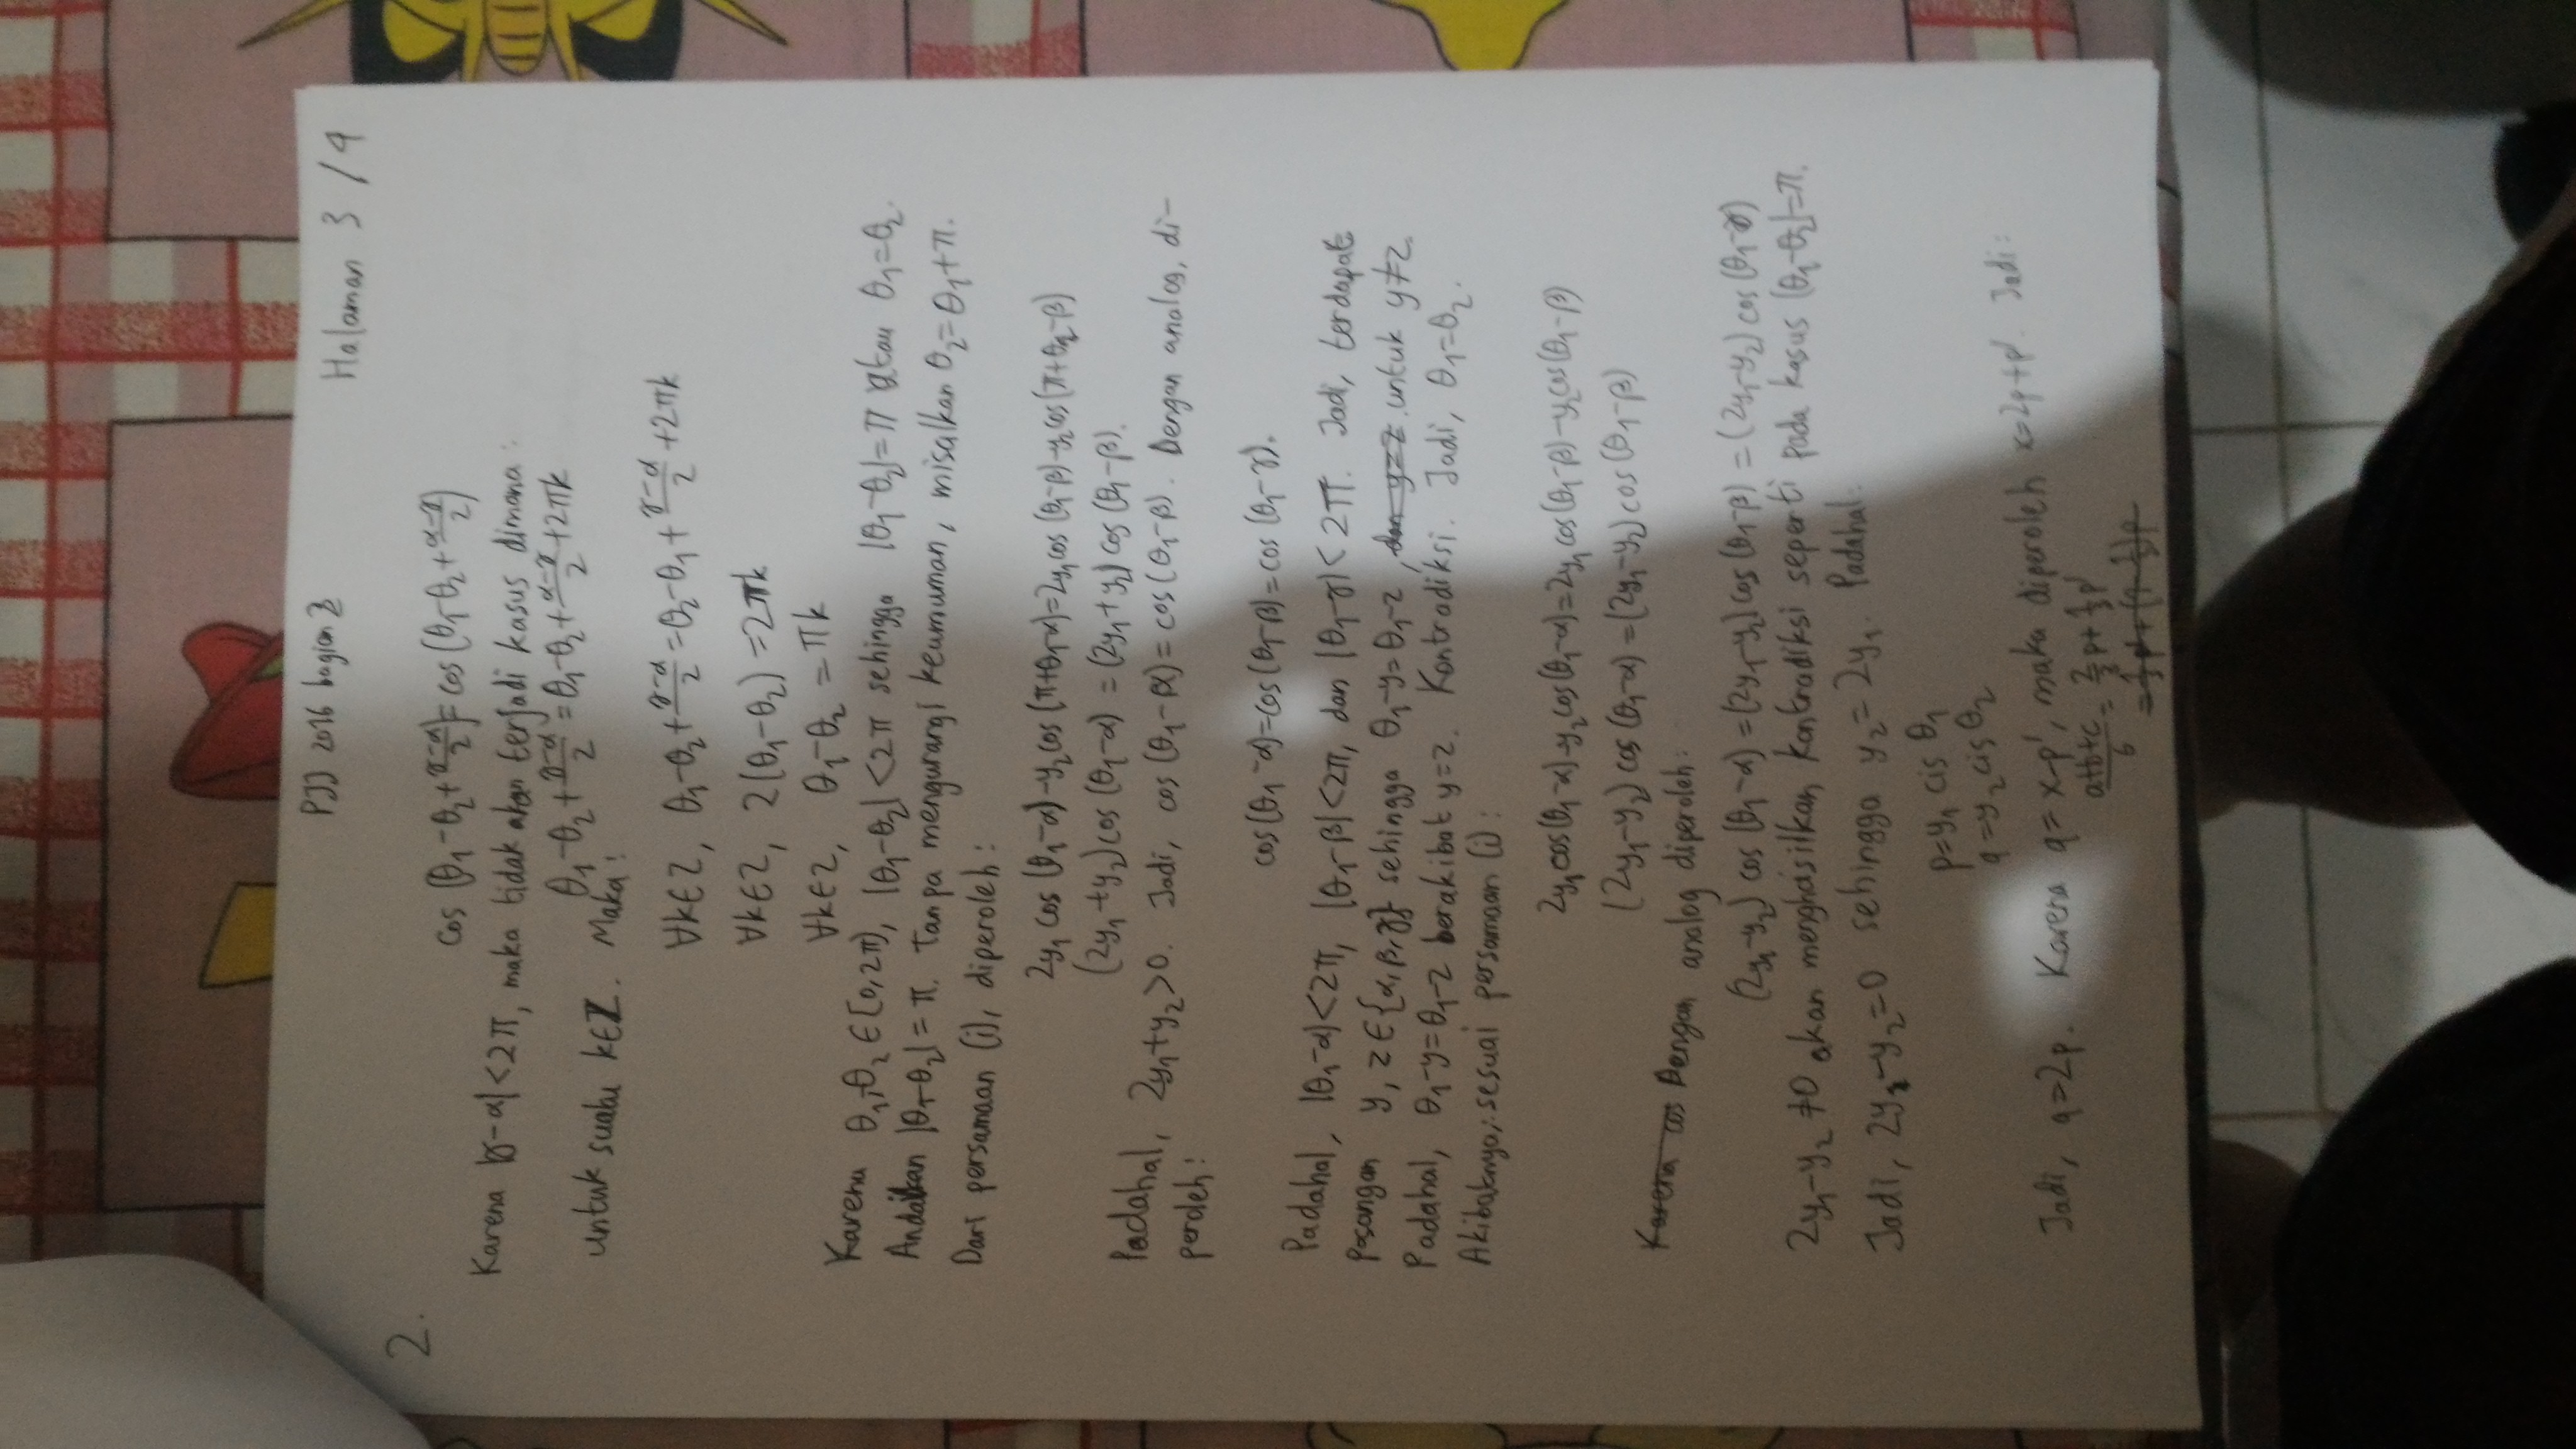 PJJ 2016 bagian 3
Halaman 3 / 4
2.
cos (θ₁-θ₂+(γ-α)/2) = cos (θ₁-θ₂+(α-γ)/2)
Karena |γ-α|<2π, maka tidak akan terjadi kasus dimana:
θ₁-θ₂+(γ-α)/2 = θ₁-θ₂+(α-γ)/2+2πk
untuk suatu k∈Z. Maka:
∀k∈Z, θ₁-θ₂+(γ-α)/2=θ₂-θ₁+(γ-α)/2+2πk
∀k∈Z, 2(θ₁-θ₂)=2πk
∀k∈Z, θ₁-θ₂=πk
Karena θ₁,θ₂∈[0,2π), |θ₁-θ₂|<2π sehingga |θ₁-θ₂|=π atau θ₁=θ₂.
Andaikan |θ₁-θ₂|=π. Tanpa mengurangi keumuman, misalkan θ₂=θ₁+π.
Dari persamaan (i), diperoleh:
2y₁ cos (θ₁-α)-y₂cos (π+θ₁-α)=2y₁cos (θ₁-β)-y₂cos(π+θ₁-β)
(2y₁+y₂)cos (θ₁-α) = (2y₁+y₂) cos (θ₁-β).
Padahal, 2y₁+y₂>0. Jadi, cos (θ₁-α)=cos(θ₁-β). Dengan analog, di-
peroleh:
cos(θ₁-α)=cos(θ₁-β)=cos (θ₁-γ).
Padahal, |θ₁-α|<2π, |θ₁-β|<2π, dan |θ₁-γ|<2π. Jadi, terdapat
pasangan y, z∈{α,β,γ} sehingga θ₁-y=θ₁-z, dan y=z untuk y≠z.
Padahal, θ₁-y=θ₁-z berakibat y=z. Kontradiksi. Jadi, θ₁=θ₂.
Akibatnya, sesuai persamaan (i):
2y₁cos(θ₁-α)-y₂cos(θ₁-α)=2y₁cos(θ₁-β)-y₂cos(θ₁-β)
(2y₁-y₂) cos (θ₁-α)=(2y₁-y₂)cos (θ₁-β)
Karena cos Dengan analog diperoleh:
(2y₁-y₂) cos (θ₁-α)=(2y₁-y₂)cos(θ₁-β)=(2y₁-y₂) cos (θ₁-γ)
2y₁-y₂≠0 akan menghasilkan kontradiksi seperti pada kasus |θ₁-θ₂|=π.
Jadi, 2y₁-y₂=0 sehingga y₂=2y₁. Padahal:
p=y₁ cis θ₁
q=y₂ cis θ₂
Jadi, q=2p. Karena q=x-p', maka diperoleh x=2p+p'. Jadi:
(a+b+c)/6 = 2/3 p+1/3 p'